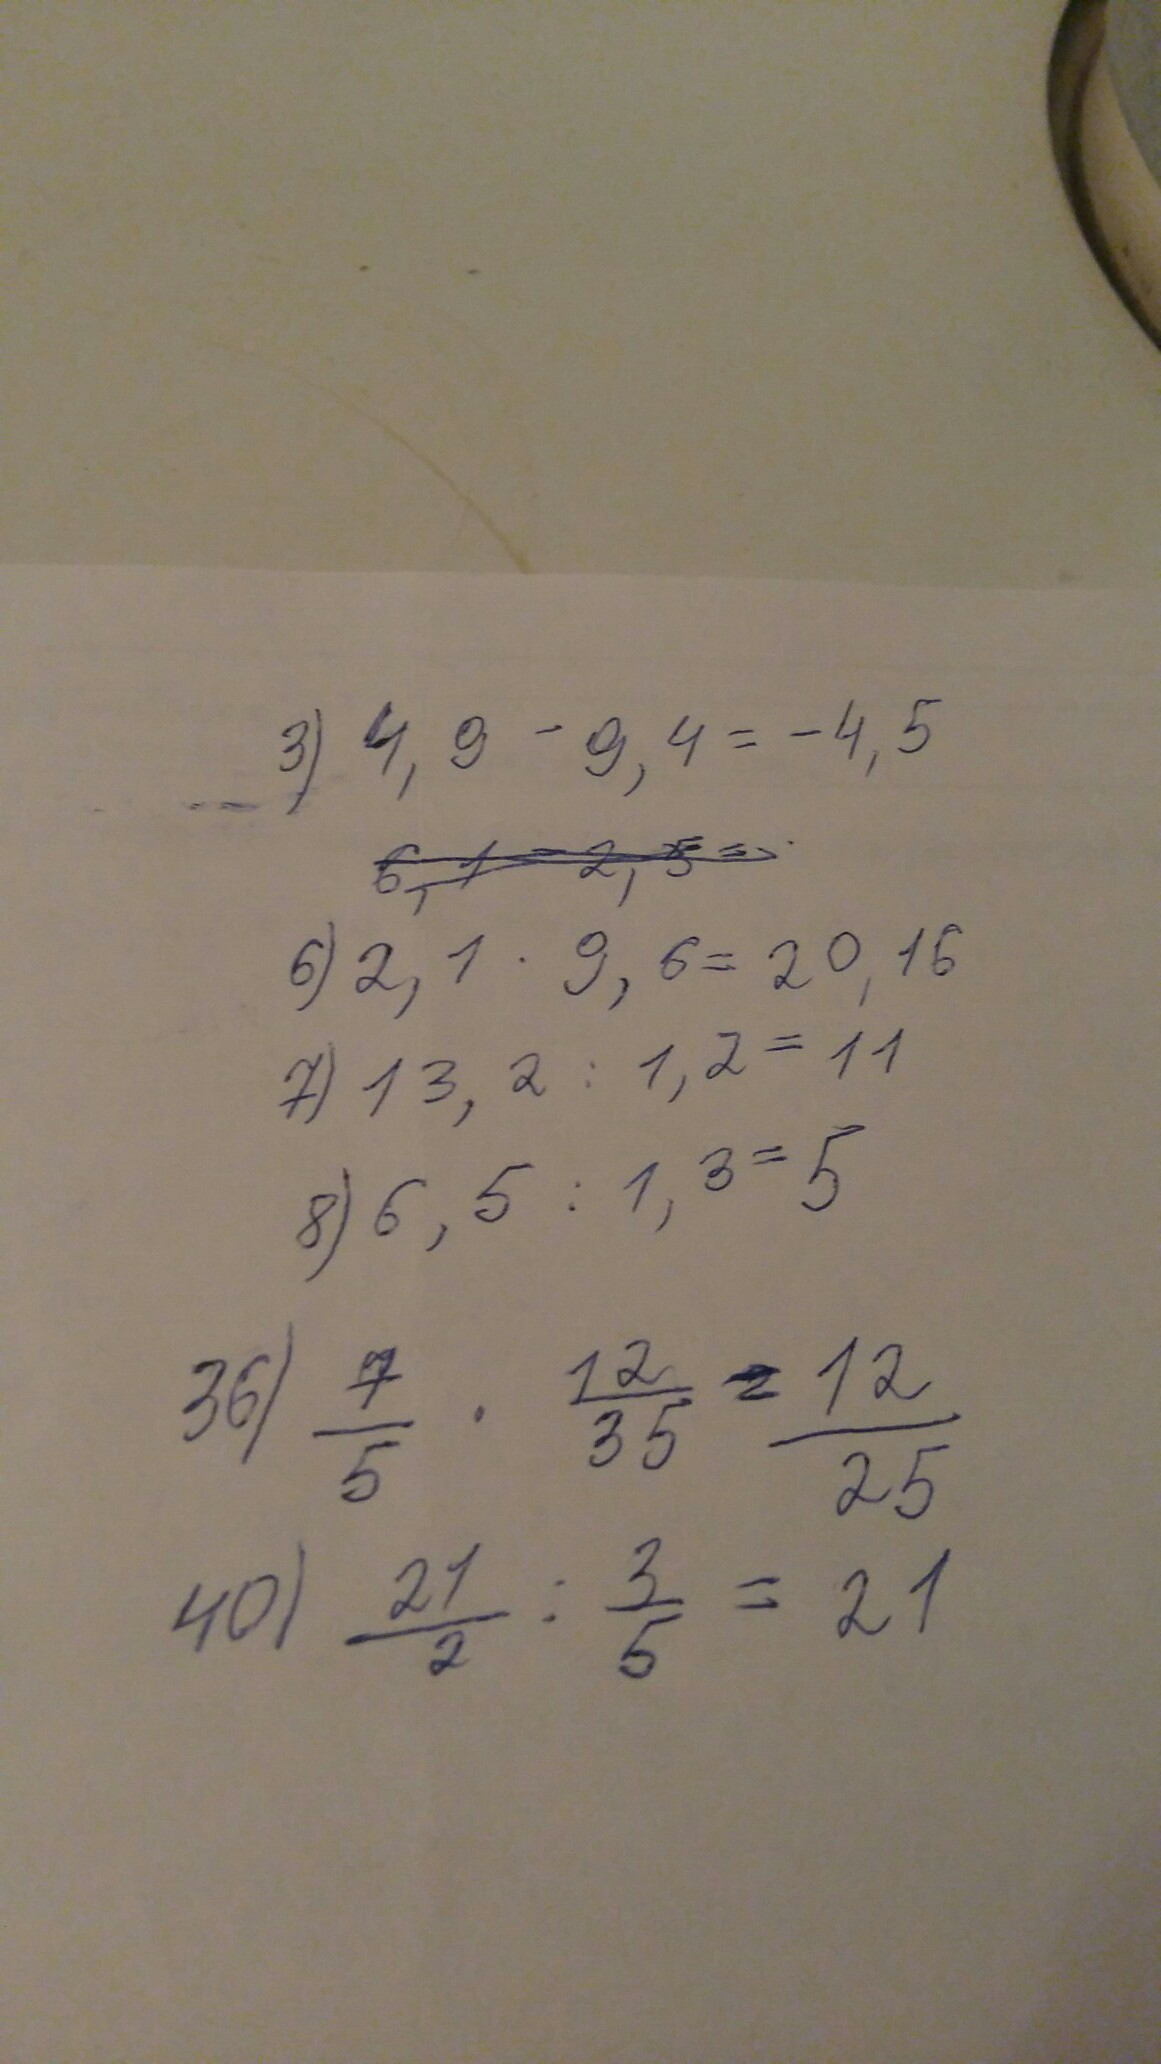 3) 4,9 - 9,4 = -4,5
6,1 - 2,5 =
6) 2,1 · 9,6 = 20,16
7) 13,2 : 1,2 = 11
8) 6,5 : 1,3 = 5
36) 7/5 · 12/35 = 12/25
40) 21/2 : 3/5 = 21